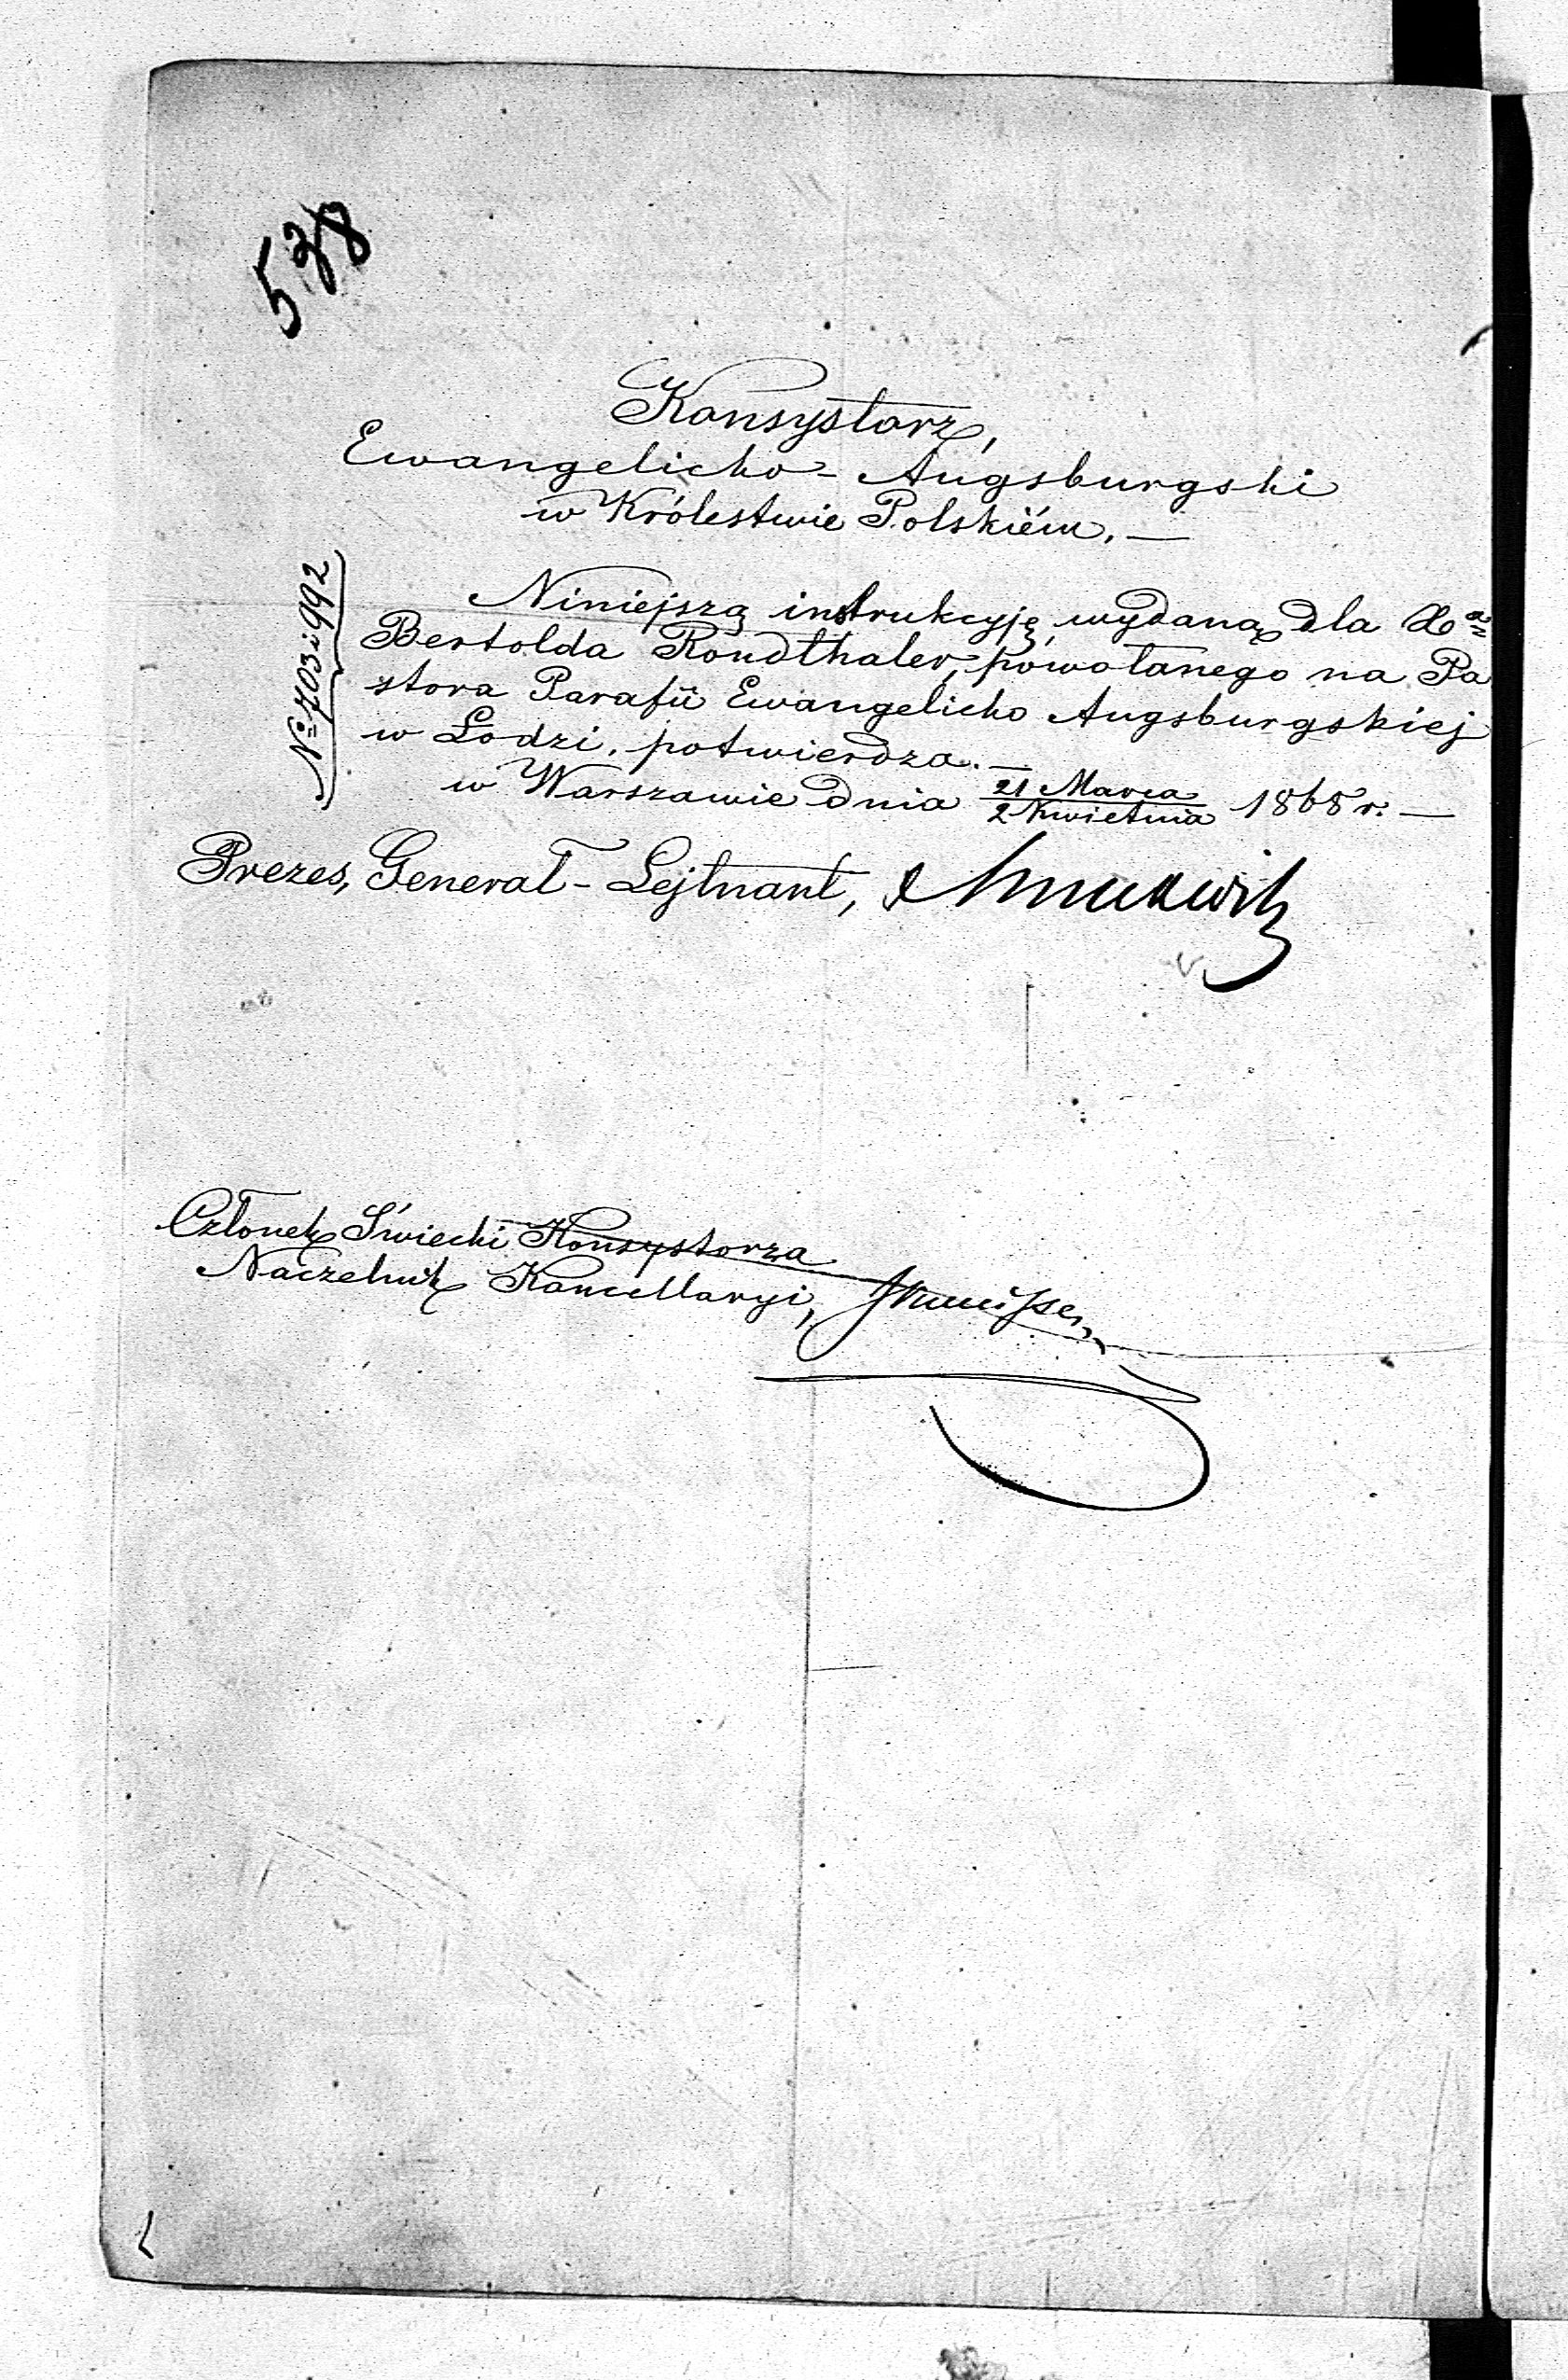 538
Konsystorz,
Ewangelicko-Augsburgski
w Królestwie Polskiém.—
№ 703 i 992
Niniejszą instrukcyję, wydaną dla Xa
Bertolda Rondthaler, powołanego na Pa
stora Parafii Ewangelicko Augsburgskiej
w Łodzi, potwierdza.—
w Warszawie dnia 21 Marca / 2 Kwietnia 1868 r.—
Prezes, Generał-Lejtnant,
Członek Świecki Konsystorza
Naczelnik Kancellaryi,